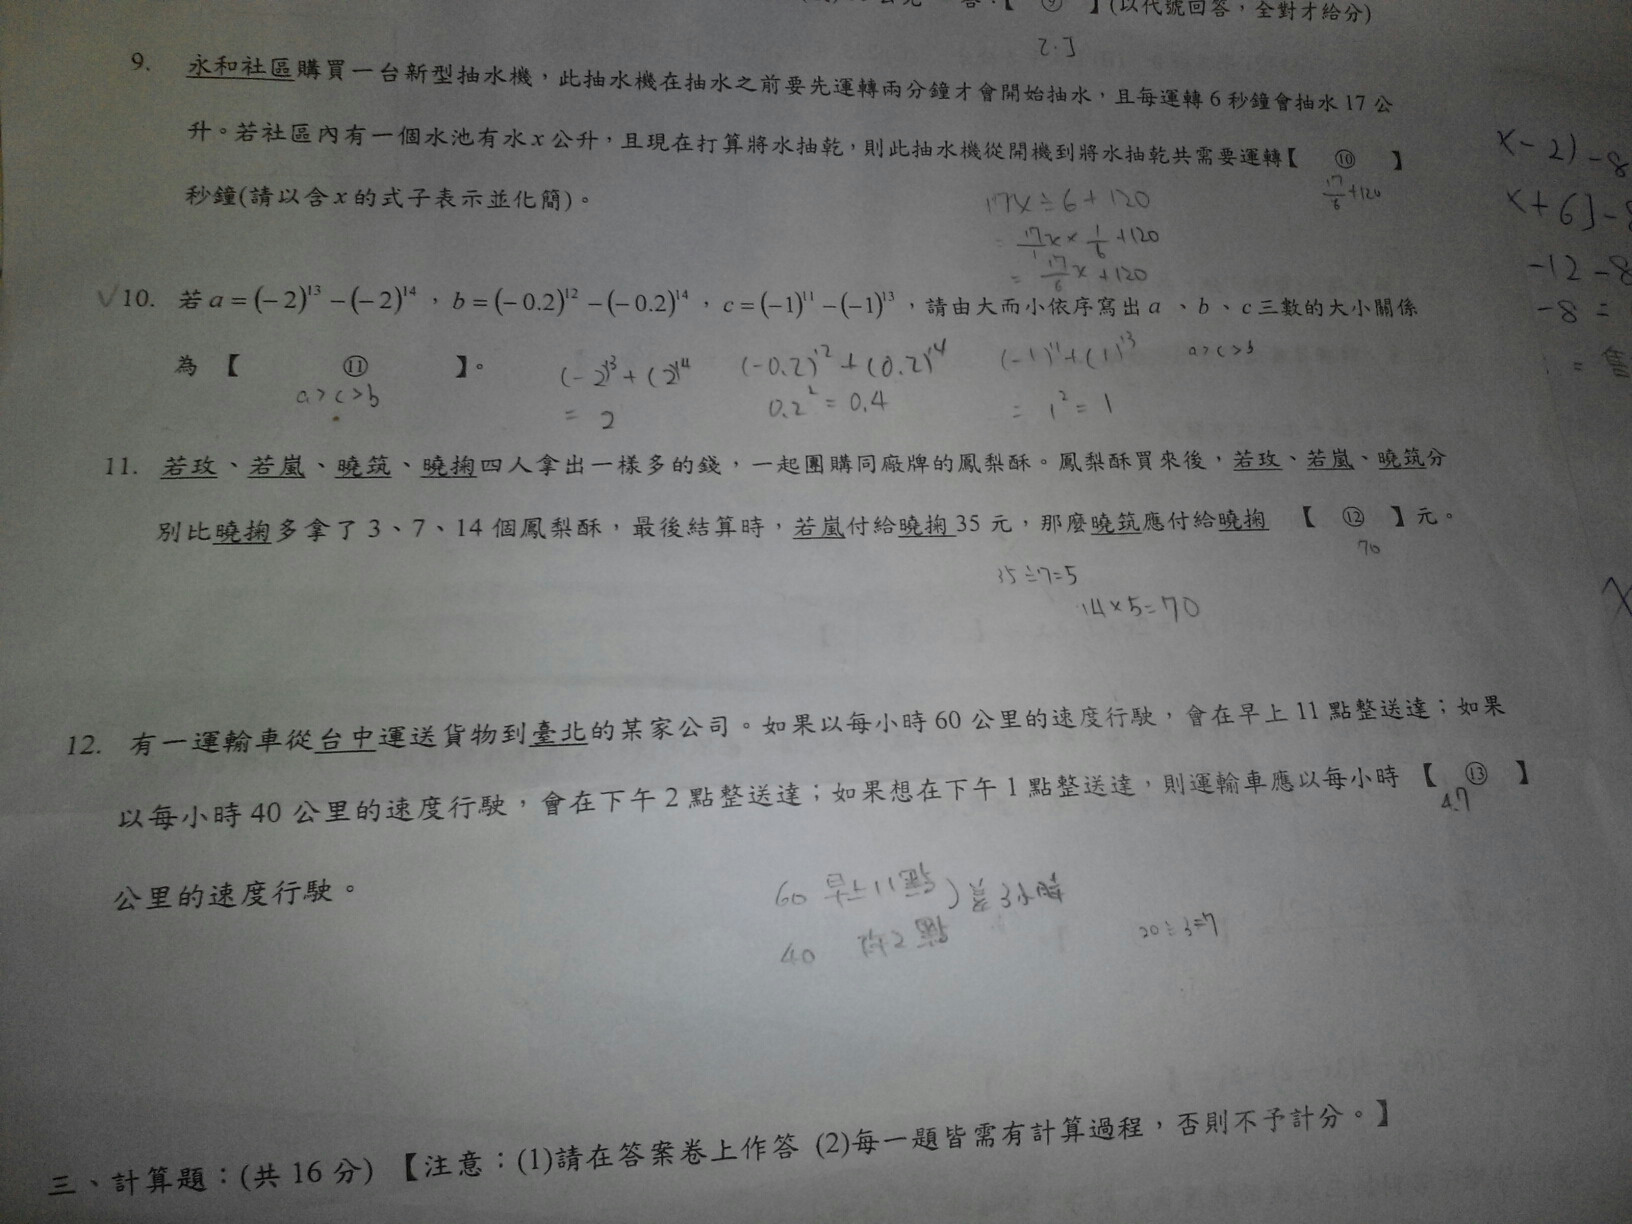 答：【 ⑨ 】(以代號回答，全對才給分)
9. 永和社區購買一台新型抽水機，此抽水機在抽水之前要先運轉兩分鐘才會開始抽水，且每運轉 6 秒鐘會抽水 17 公
升。若社區內有一個水池有水 x 公升，且現在打算將水抽乾，則此抽水機從開機到將水抽乾共需要運轉【 ⑩ 】
秒鐘(請以含 x 的式子表示並化簡)。
17/6+120
17x÷6+120
= 17x/1 × 1/6 +120
= 17/6 x +120
x-2)-8
x+6]-8
-12-8
-8=
√10. 若 a=(-2)¹³-(-2)¹⁴，b=(-0.2)¹²-(-0.2)¹⁴，c=(-1)¹¹-(-1)¹³，請由大而小依序寫出 a 、b 、c 三數的大小關係
為【 ⑪ 】。
a>c>b
(-2)¹³+(2)¹⁴
= 2
(-0.2)¹²+(0.2)¹⁴
0.2²=0.4
(-1)¹¹+(1)¹³
= 1²=1
a>c>b
11. 若玫、若嵐、曉筑、曉掬四人拿出一樣多的錢，一起團購同廠牌的鳳梨酥。鳳梨酥買來後，若玫、若嵐、曉筑分
別比曉掬多拿了 3、7、14 個鳳梨酥，最後結算時，若嵐付給曉掬 35 元，那麼曉筑應付給曉掬 【 ⑫ 】元。
70
35÷7=5
14×5=70
12. 有一運輸車從台中運送貨物到臺北的某家公司。如果以每小時 60 公里的速度行駛，會在早上 11 點整送達；如果
以每小時 40 公里的速度行駛，會在下午 2 點整送達；如果想在下午 1 點整送達，則運輸車應以每小時【 ⑬ 】
47
公里的速度行駛。
60 早上11點
差3小時
40
20÷3=7
三、計算題：(共 16 分) 【注意：(1)請在答案卷上作答 (2)每一題皆需有計算過程，否則不予計分。】